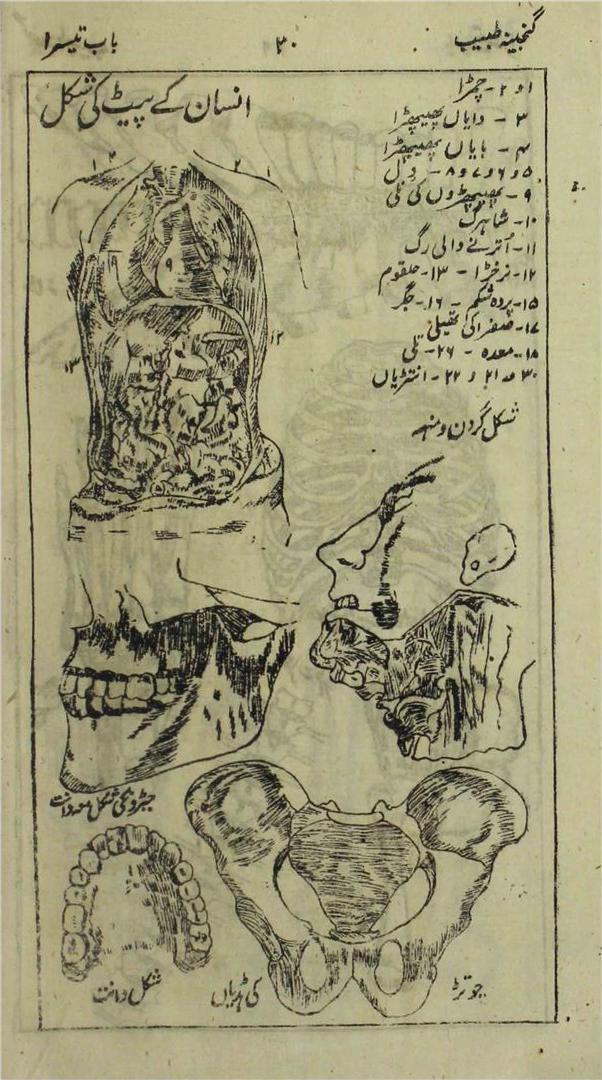 گنجینہ طبیب ۳۰ باب تیسرا
انسان کے پیٹ کی شکل
۱ و ۲ - چمڑا
۳ - دایاں پھیپھڑا
۴ - بایاں پھیپھڑا
۵ و ۶ و ۷ و ۸ - دل
۹ - پھیپھڑوں کی نلی
۱۰ - شاہرگ
۱۱ - اُترنے والی رگ
۱۲ - نرخڑا - ۱۳ - حلقوم
۱۵ - پردہ شکم - ۱۶ - جگر
۱۷ - صفرا کی تھیلی
۱۸ - معدہ - ۲۶ - تلی
۲۱ و ۲۲ - انتڑیاں
۱ ۲ ۲ ۱
۹
۱۲
۱۳
شکل گردن و منہ
جبڑونکی شکل معہ دانت
شکل دانت
چوتڑ کی ہڈیاں